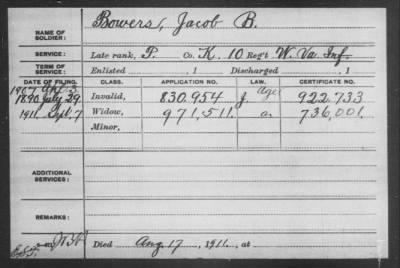 NAME OF SOLDIER: Bowers, Jacob B.
SERVICE: Late rank, P. Co. K, 10 Reg't W. Va. Inf.
TERM OF SERVICE: Enlisted , 1 Discharged , 1
DATE OF FILING. CLASS. APPLICATION NO. LAW. CERTIFICATE NO.
1907 Apr 3 Age
1890 July 29 Invalid, 830.954 J. 922.733
1911 Sept. 7 Widow, 971,511. a. 736,001.
Minor,
ADDITIONAL SERVICES:
REMARKS:
Died Aug. 17, 1911, at